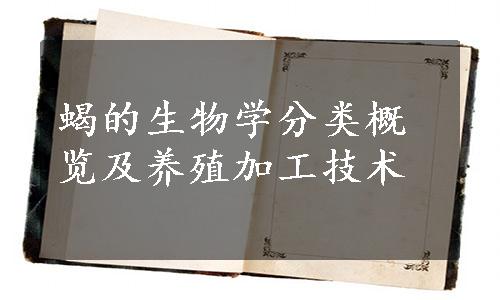 蝎的生物学分类概
览及养殖加工技术